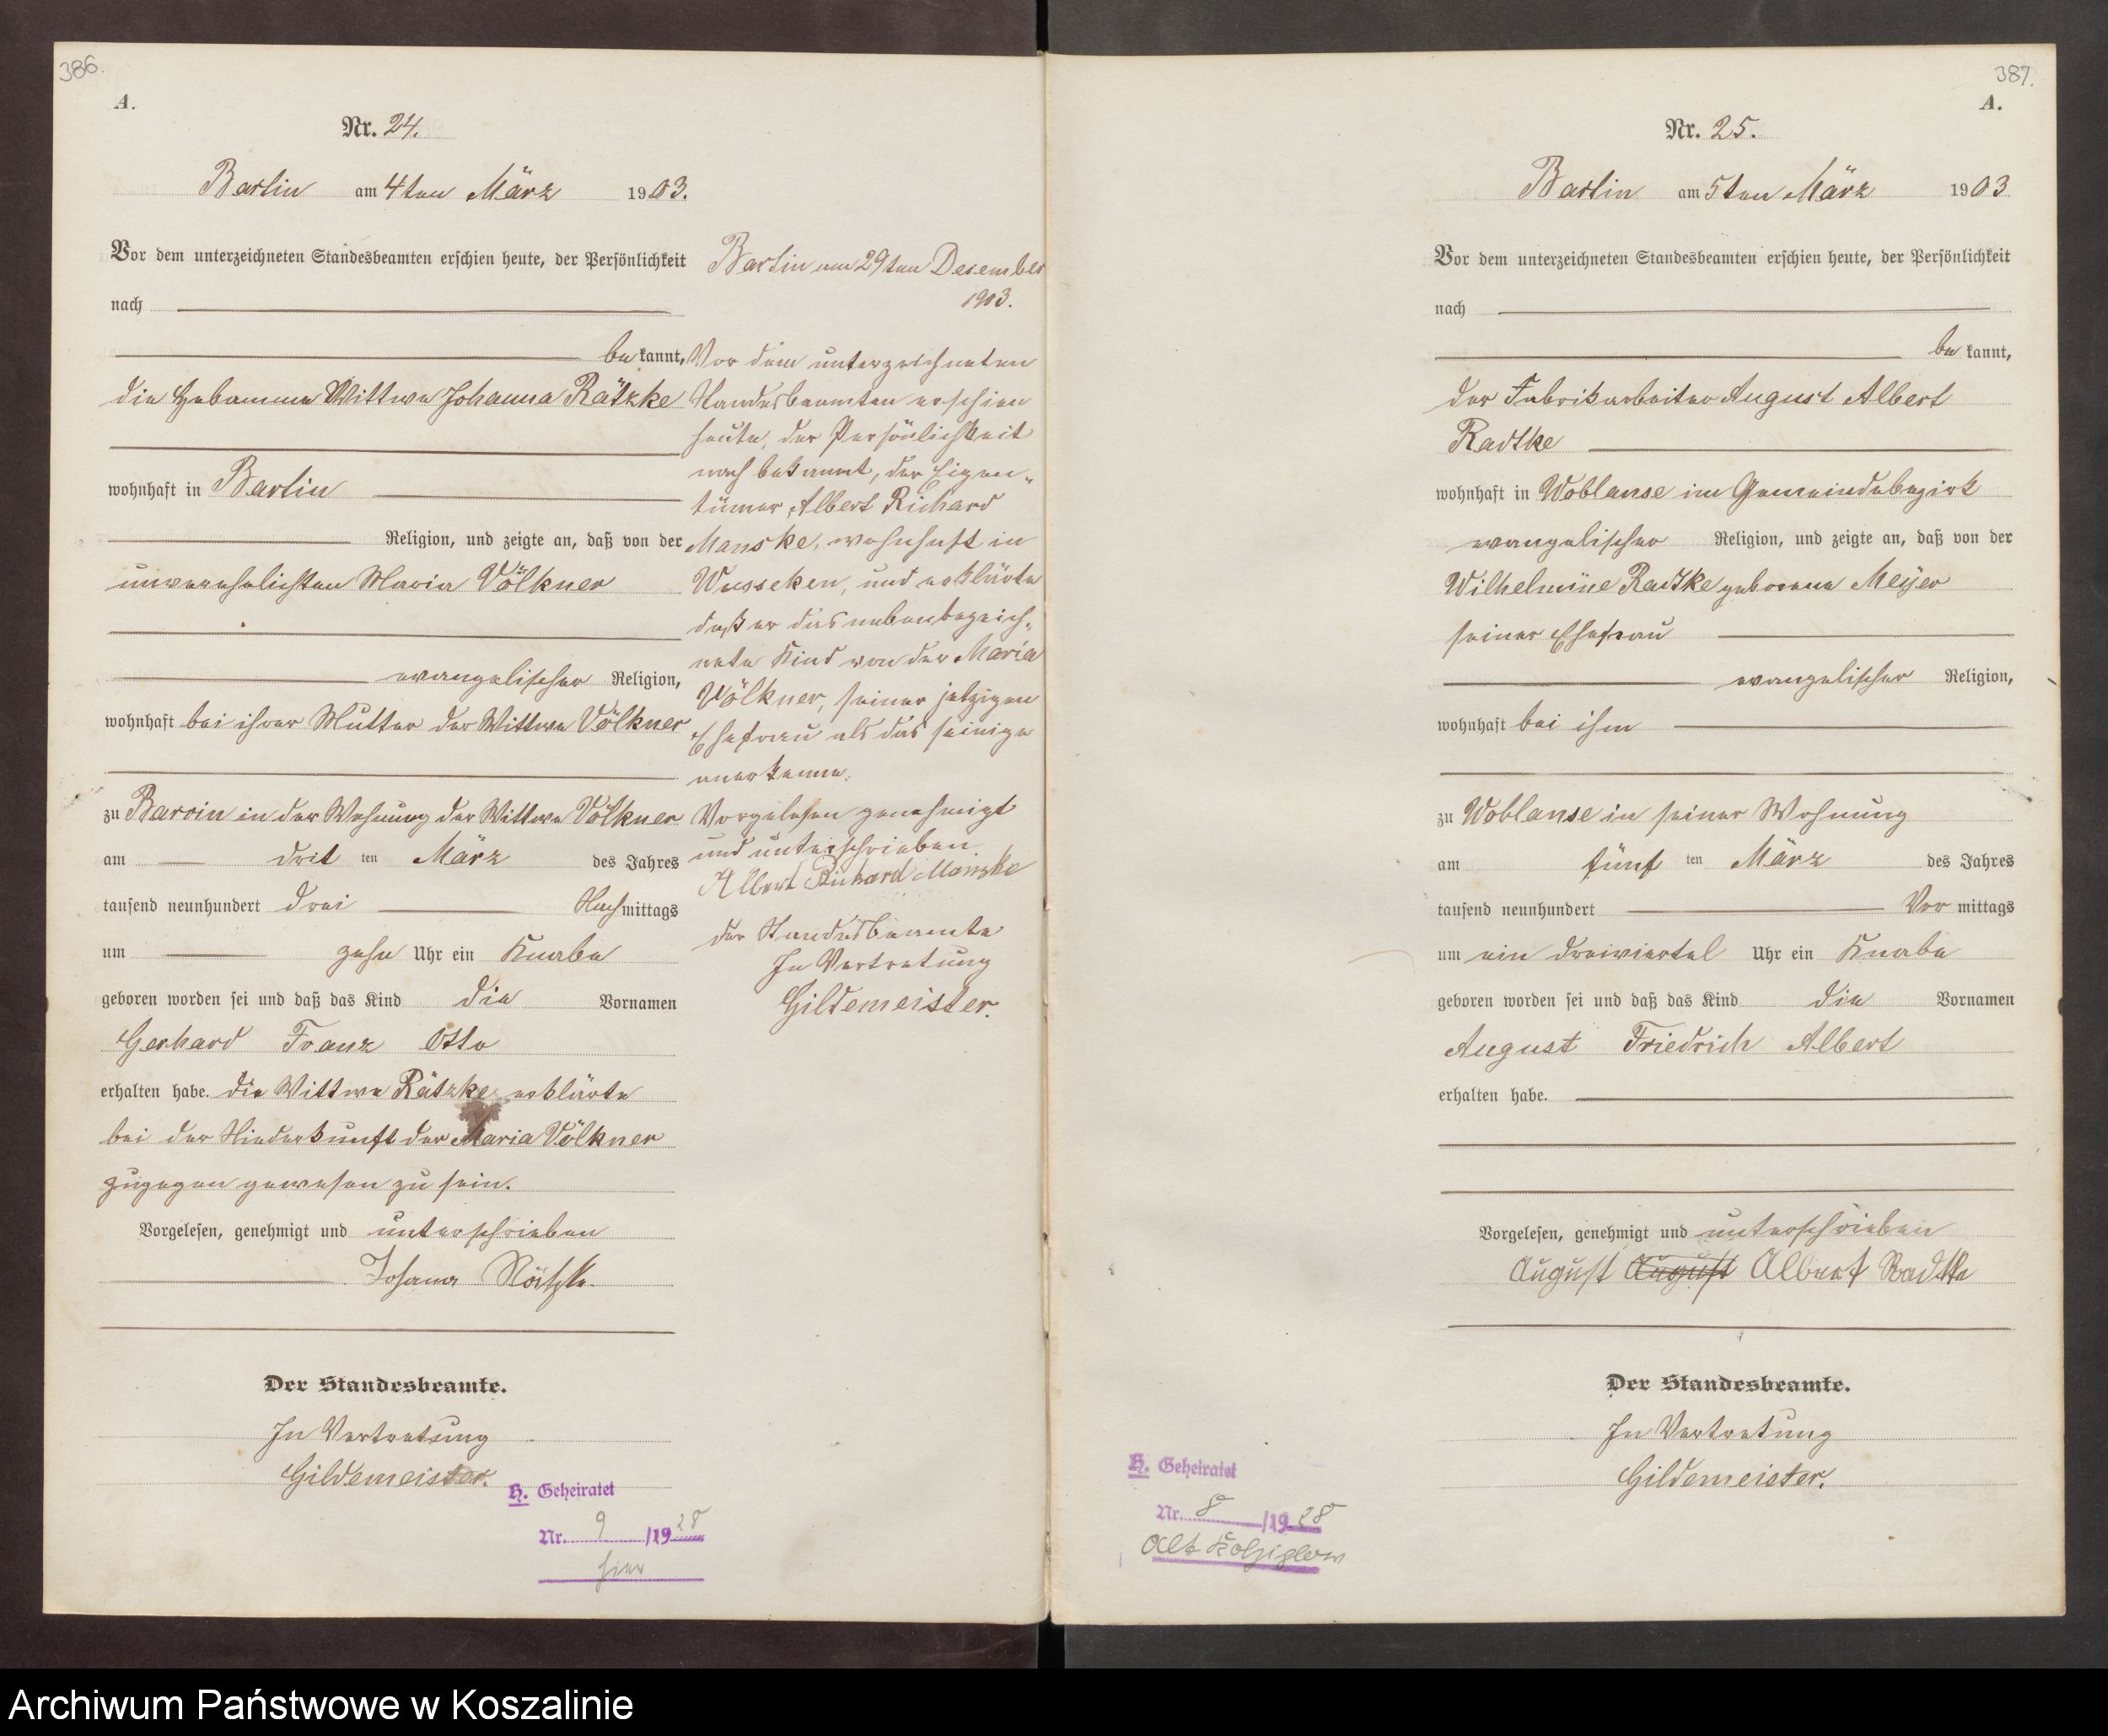 386.
A.
Nr. 24.
Bartin am 4ten März 1903.
Vor dem unterzeichneten Standesbeamten erschien heute, der Persönlichkeit
nach
bekannt,
die Hebamme Wittwe Johanna Rätzke
wohnhaft in Bartin
Religion, und zeigte an, daß von der
unverehelichten Maria Völkner
evangelischer Religion,
wohnhaft bei ihrer Mutter der Wittwe Völkner
zu Barvin in der Wohnung der Wittwe Völkner
am drit ten März des Jahres
tausend neunhundert drei Nachmittags
um zehn Uhr ein Knabe
geboren worden sei und daß das Kind die Vornamen
Gerhard Franz Otto
erhalten habe. die Wittwe Rätzke erklärte
bei der Niederkunft der Maria Völkner
zugegen gewesen zu sein.
Vorgelesen, genehmigt und unterschrieben
Johanna Rätzke.
Der Standesbeamte.
In Vertretung
Gildemeister.
H. Geheiratet
Nr. 9 /1928
hier
Bartin am 29ten Dezember
1903.
Vor dem unterzeichneten
Standesbeamten erschien
heute, der Persönlichkeit
nach bekannt, der Eigen-
tümer Albert Richard
Manske, wohnhaft in
Wusseken, und erklärte
daß er das nebenbezeich-
nete Kind von der Maria
Völkner, seiner jetzigen
Ehefrau als das seinige
anerkenne.
Vorgelesen genehmigt
und unterschrieben
Albert Richard Manske
der Standesbeamte
In Vertretung
Gildemeister.
387.
A.
Nr. 25.
Bartin am 5ten März 1903
Vor dem unterzeichneten Standesbeamten erschien heute, der Persönlichkeit
nach
bekannt,
der Fabrikarbeiter August Albert
Radtke
wohnhaft in Woblanse im Gemeindebezirk
evangelischer Religion, und zeigte an, daß von der
Wilhelmine Radtke geborene Meyer
seiner Ehefrau
evangelischer Religion,
wohnhaft bei ihm
zu Woblanse in seiner Wohnung
am fünf ten März des Jahres
tausend neunhundert Vormittags
um ein dreiviertel Uhr ein Knabe
geboren worden sei und daß das Kind die Vornamen
August Friedrich Albert
erhalten habe.
Vorgelesen, genehmigt und unterschrieben
August August Albert Radtke
Der Standesbeamte.
In Vertretung
Gildemeister.
H. Geheiratet
Nr. 8 /1928
Alt Kolziglow
Archiwum Państwowe w Koszalinie